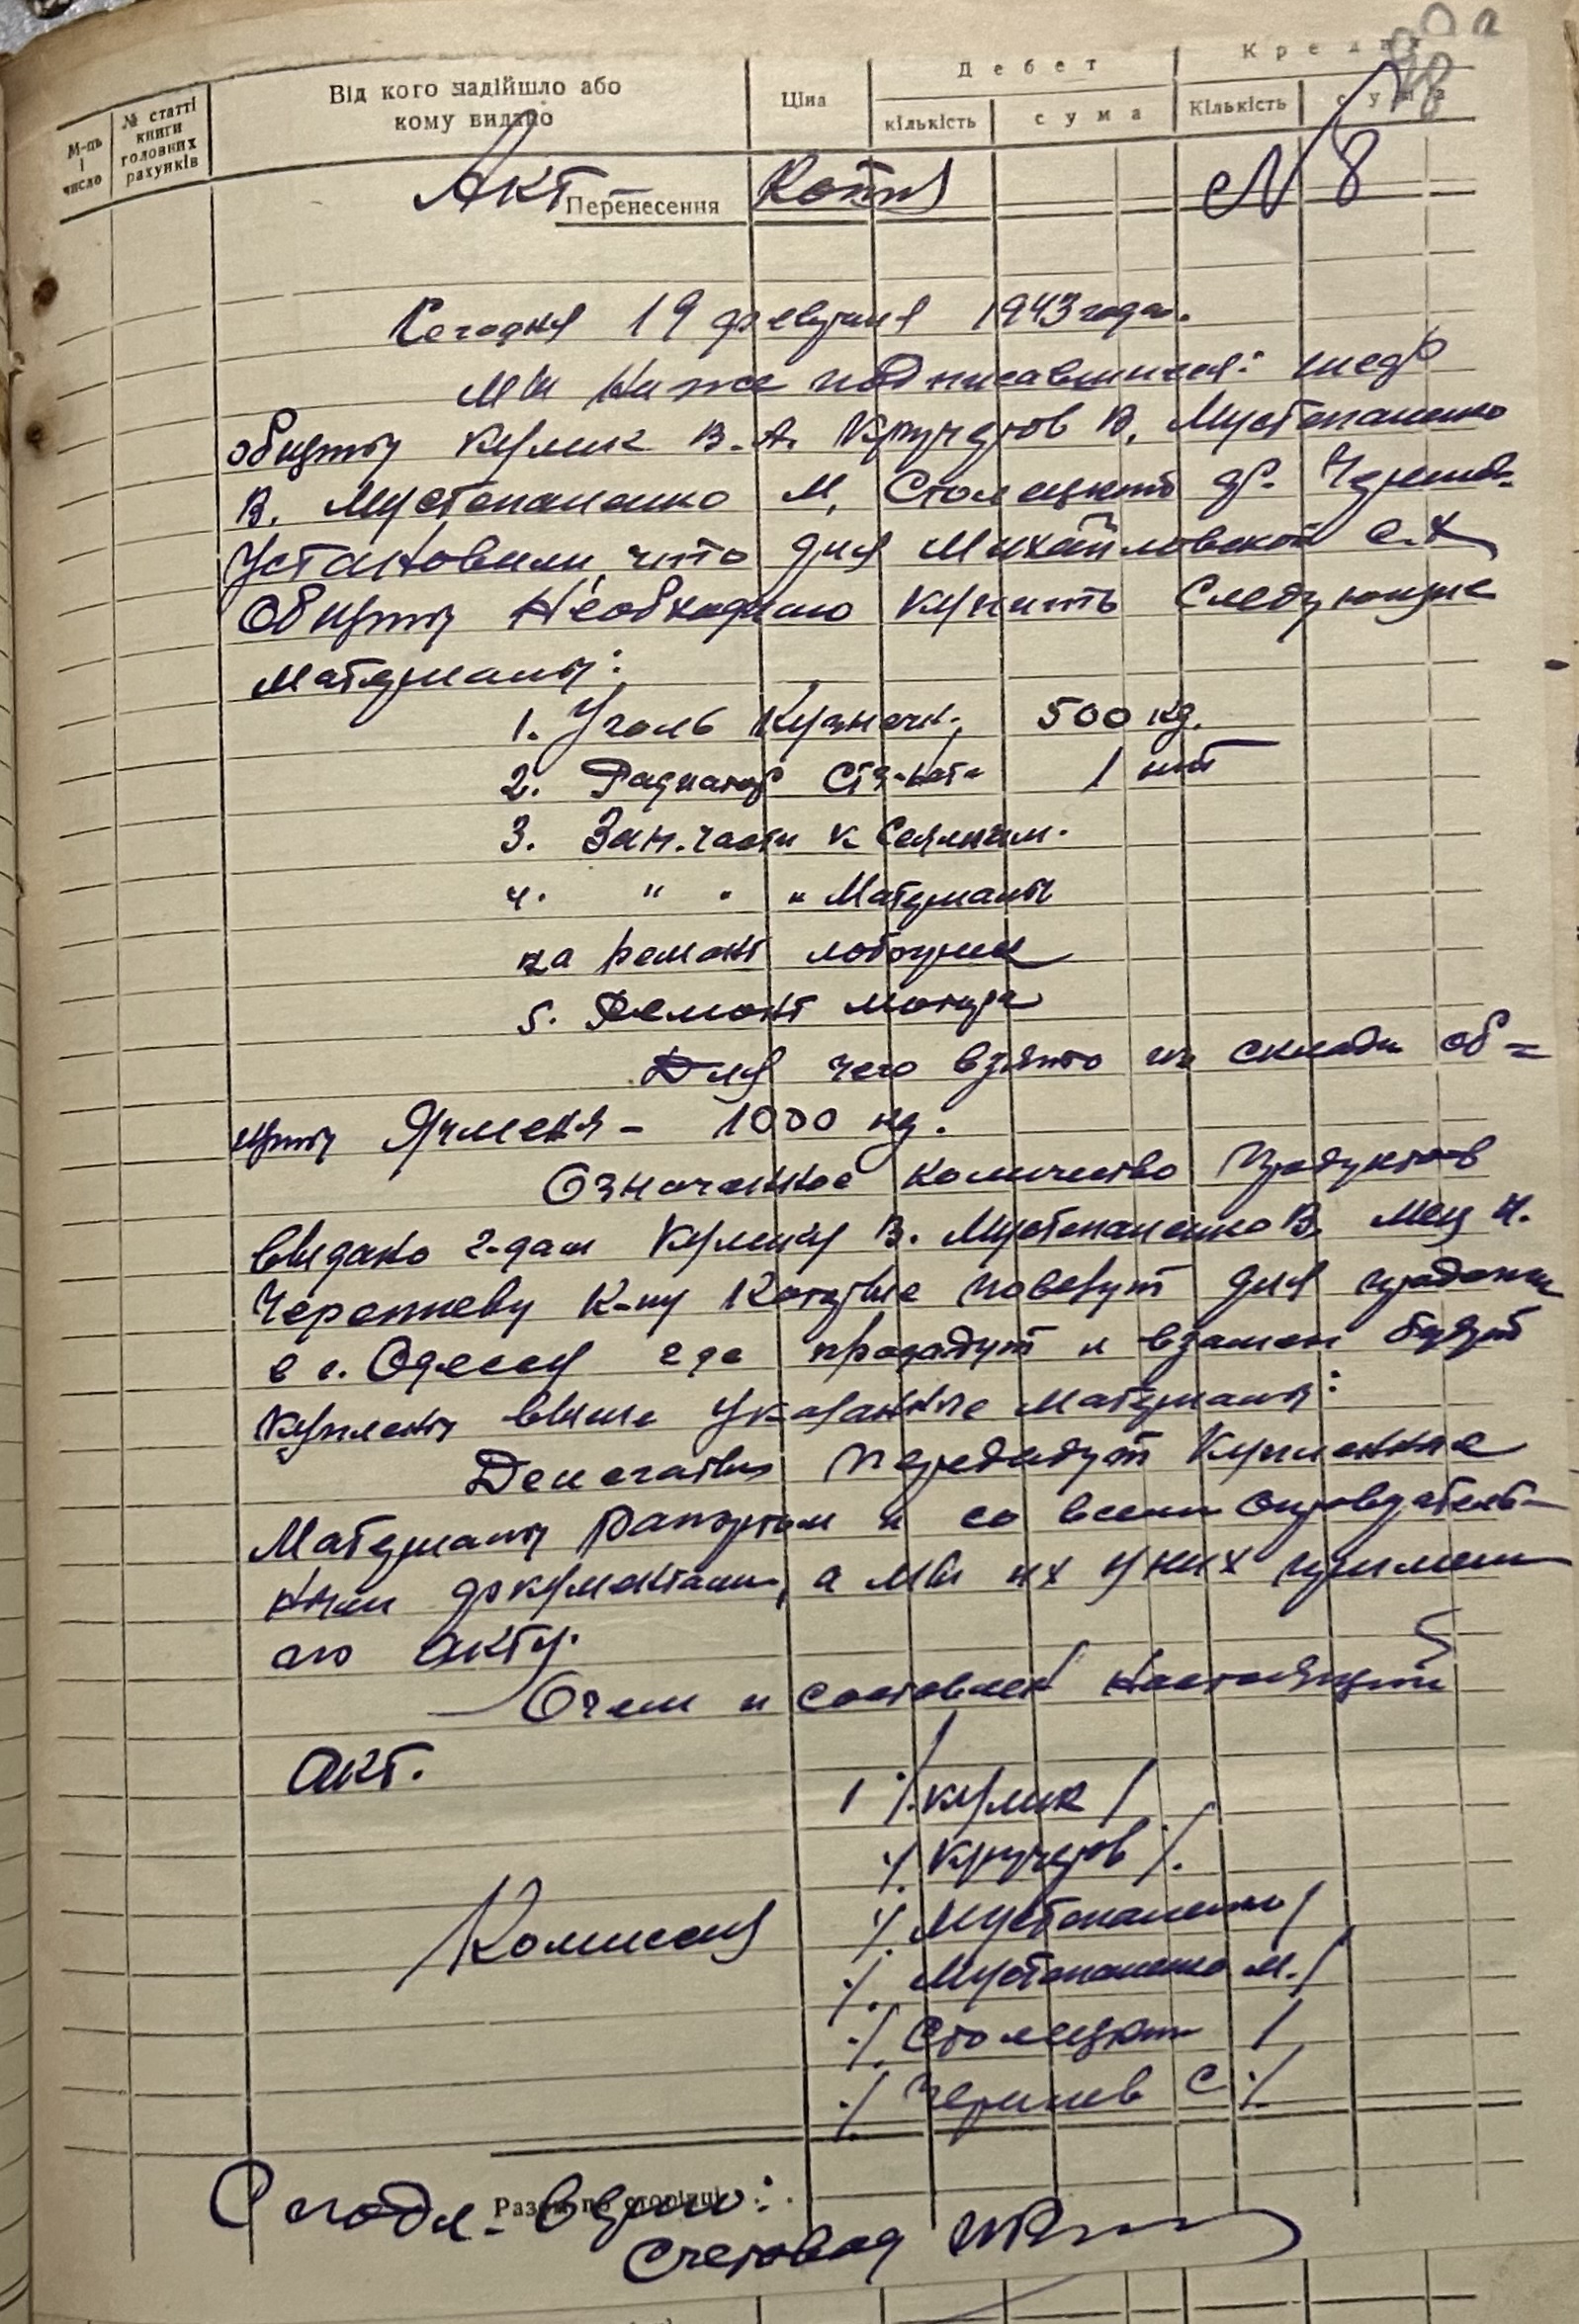 88 а
М-ць і число
№ статті книги головних рахунків
Від кого надійшло або кому видано
Ціна
Дебет
Кредит
кількість
сума
Кількість
сума
Акт Копия № 8
Перенесення
Сегодня 19 февраля 1943 года.
Мы ниже подписавшиеся:
общины Кулик В. А. Кручеров В. Мустопаленко
В. Мустопаленко М. Столецкий
Установили, что для Михайловской с.х
Общины Необходимо купить Следующие
Материалы:
1. Уголь Кузнечн. 500 кг.
2. Радиатор 1 шт
3. Зап. части к Сеялкам.
4. " " " Материалы
на ремонт лобогреек
5. Ремонт мотора
Для чего взято из склада об=
щины Ячменя – 1000 кг.
Означенное количество продуктов
выдано г-дам Кулику В. Мустопаленко В.
Черепневу К-ну Которые повезут для продажи
в г. Одессу где продадут и взамен будут
куплены выше указанные материалы:
Делегаты передадут Купленные
Материалы рапортом и со всеми оправдатель-
ными документами, а мы их у них примем
по акту.
О чем и составлен настоящий
акт.
1 /. Кулик /
/. Кручеров /.
Комиссия /. Мустопаленко /
/. Мустопаленко М. /
./. Столецкий /
./. С. /.
Разом по сторінці
С подл. верно:
Счетовод